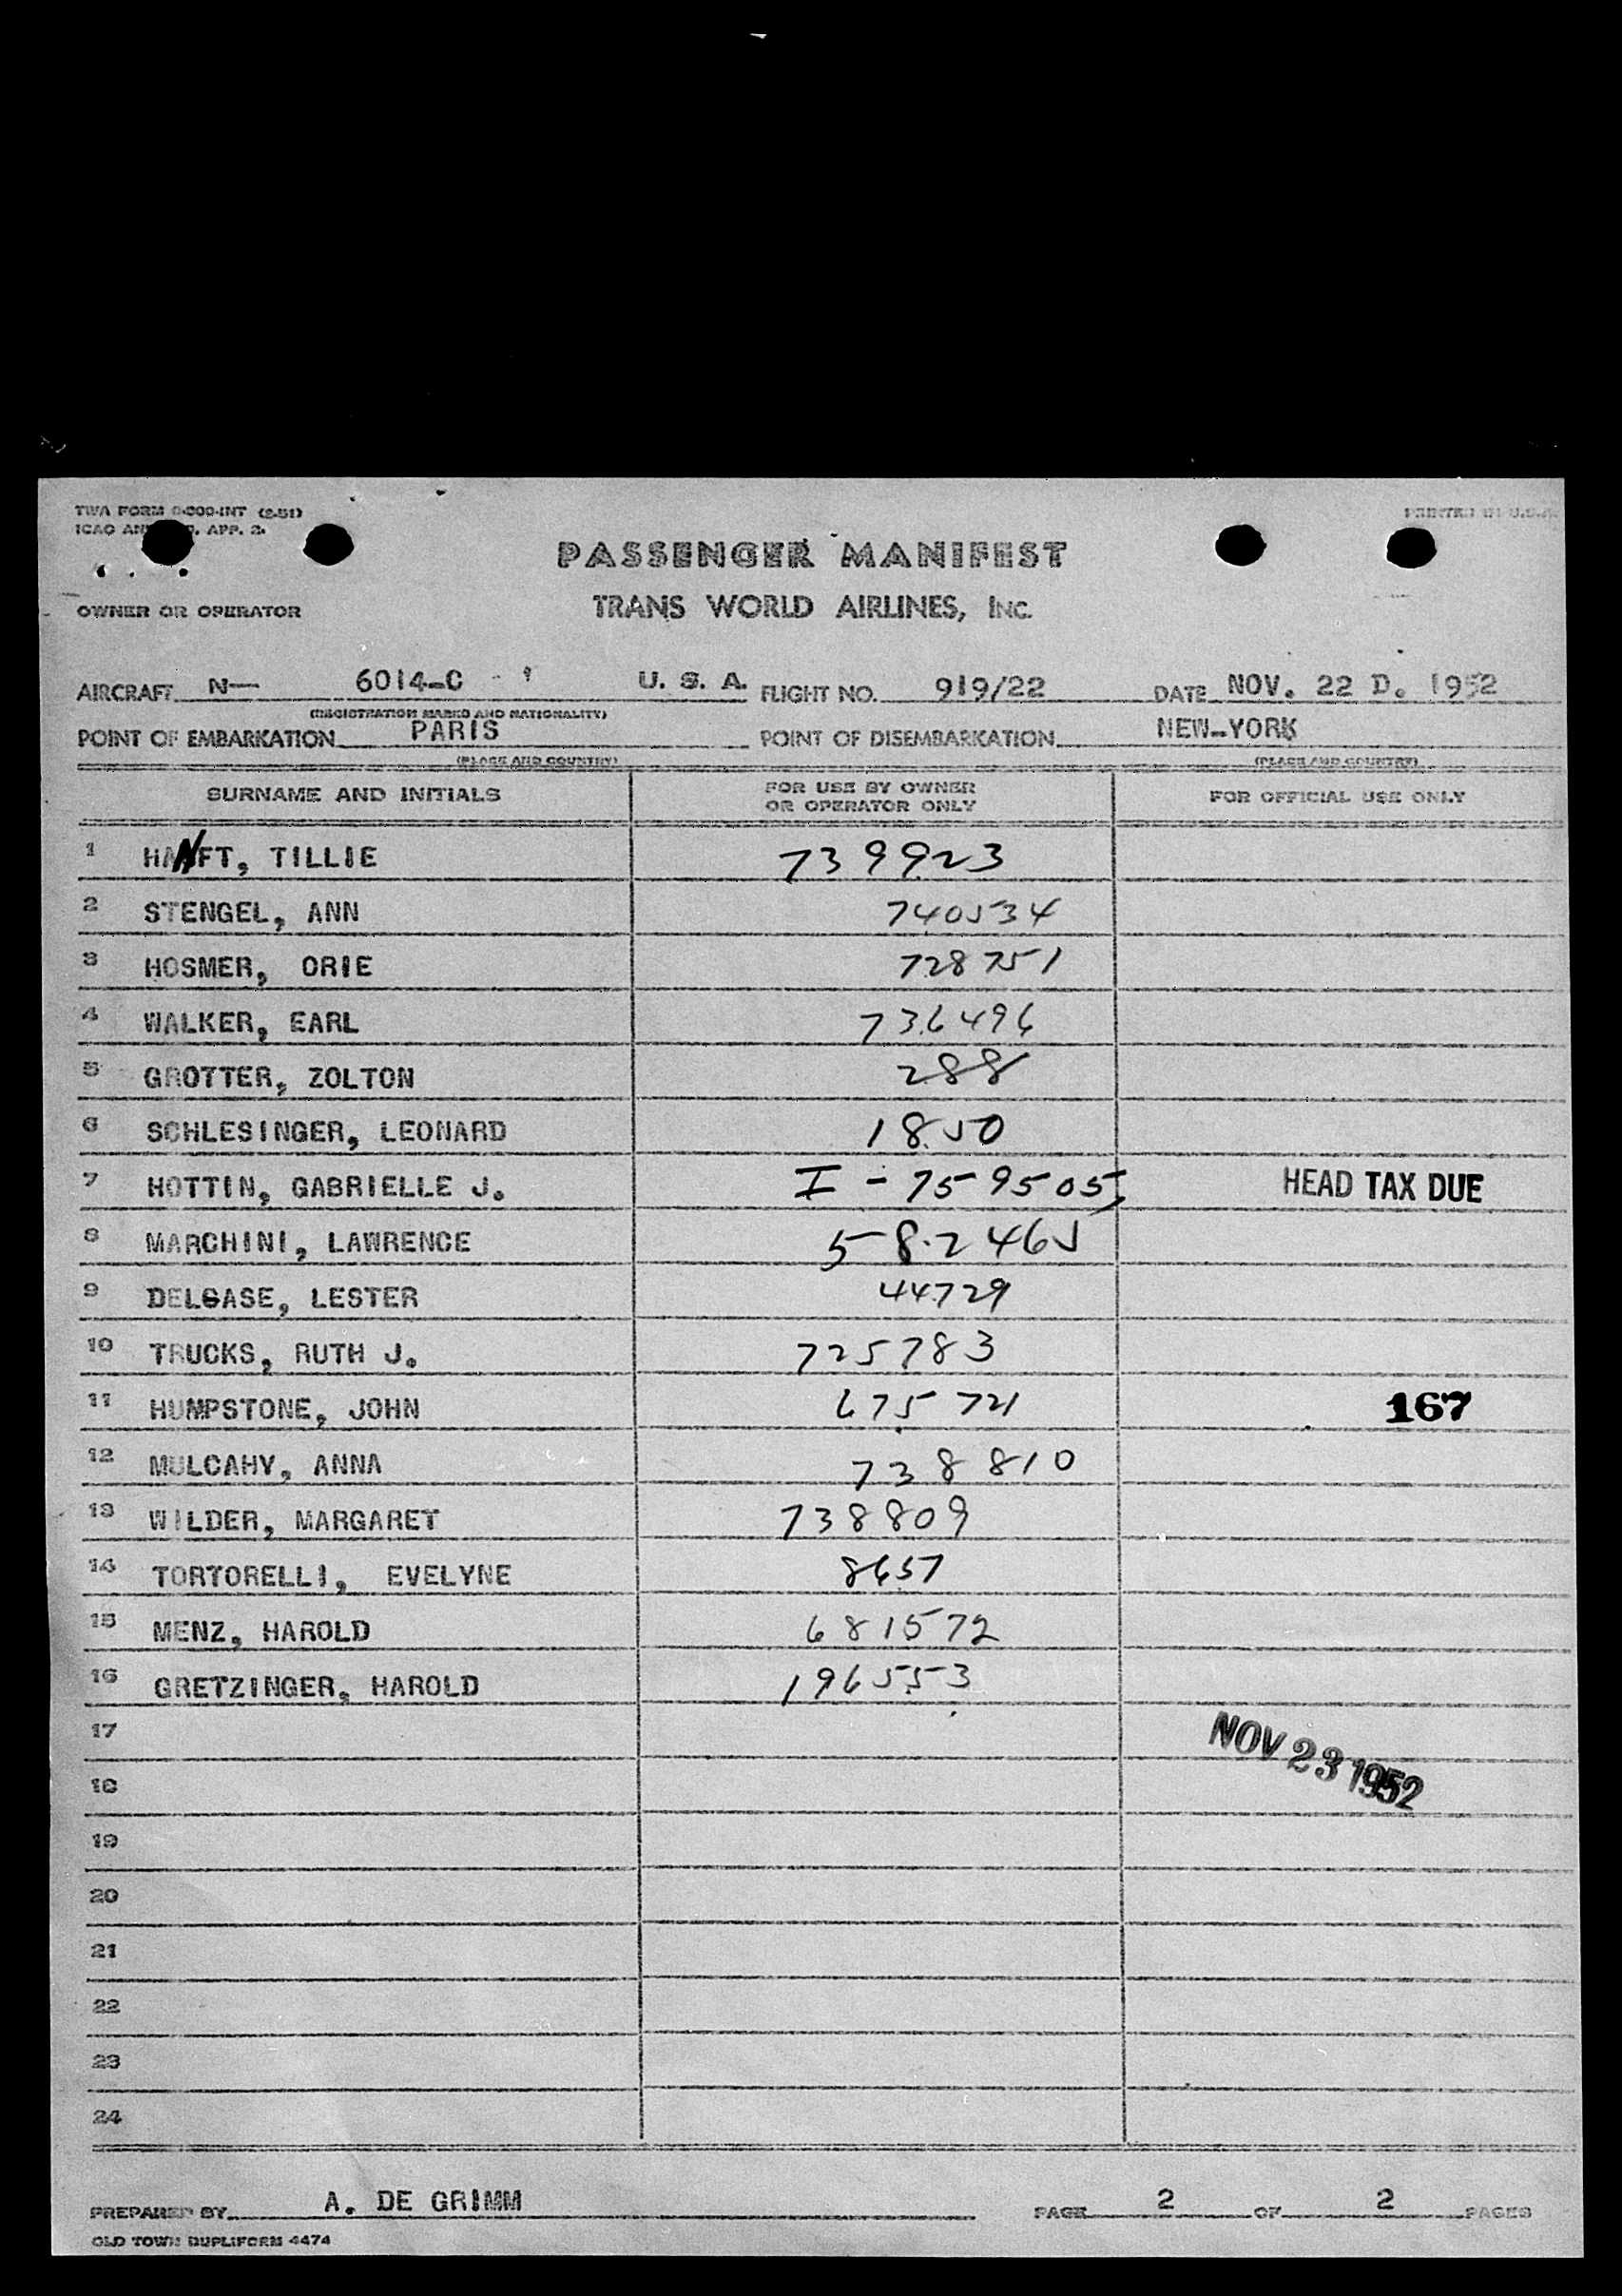 TWA FORM 0-200-INT (2-51)
PRINTED IN U.S.A.
ICAO AN 9, APP. 2.
PASSENGER MANIFEST
OWNER OR OPERATOR
TRANS WORLD AIRLINES, INC.
AIRCRAFT N— 6014-C U. S. A. FLIGHT NO. 919/22 DATE NOV. 22 D. 1952
(REGISTRATION MARKS AND NATIONALITY)
POINT OF EMBARKATION PARIS POINT OF DISEMBARKATION NEW-YORK
(PLACE AND COUNTRY) (PLACE AND COUNTRY)
SURNAME AND INITIALS FOR USE BY OWNER OR OPERATOR ONLY FOR OFFICIAL USE ONLY
1 HANFT, TILLIE 739923
2 STENGEL, ANN 740534
3 HOSMER, ORIE 728751
4 WALKER, EARL 736496
5 GROTTER, ZOLTON 288
6 SCHLESINGER, LEONARD 1850
7 HOTTIN, GABRIELLE J. I-759505 HEAD TAX DUE
8 MARCHINI, LAWRENCE 582465
9 DELGASE, LESTER 44729
10 TRUCKS, RUTH J. 725783
11 HUMPSTONE, JOHN 675721 167
12 MULCAHY, ANNA 738810
13 WILDER, MARGARET 738809
14 TORTORELLI, EVELYNE 8657
15 MENZ, HAROLD 681572
16 GRETZINGER, HAROLD 196553
17
NOV 23 1952
18
19
20
21
22
23
24
PREPARED BY A. DE GRIMM PAGE 2 OF 2 PAGES
OLD TOWN DUPLIFORM 4474